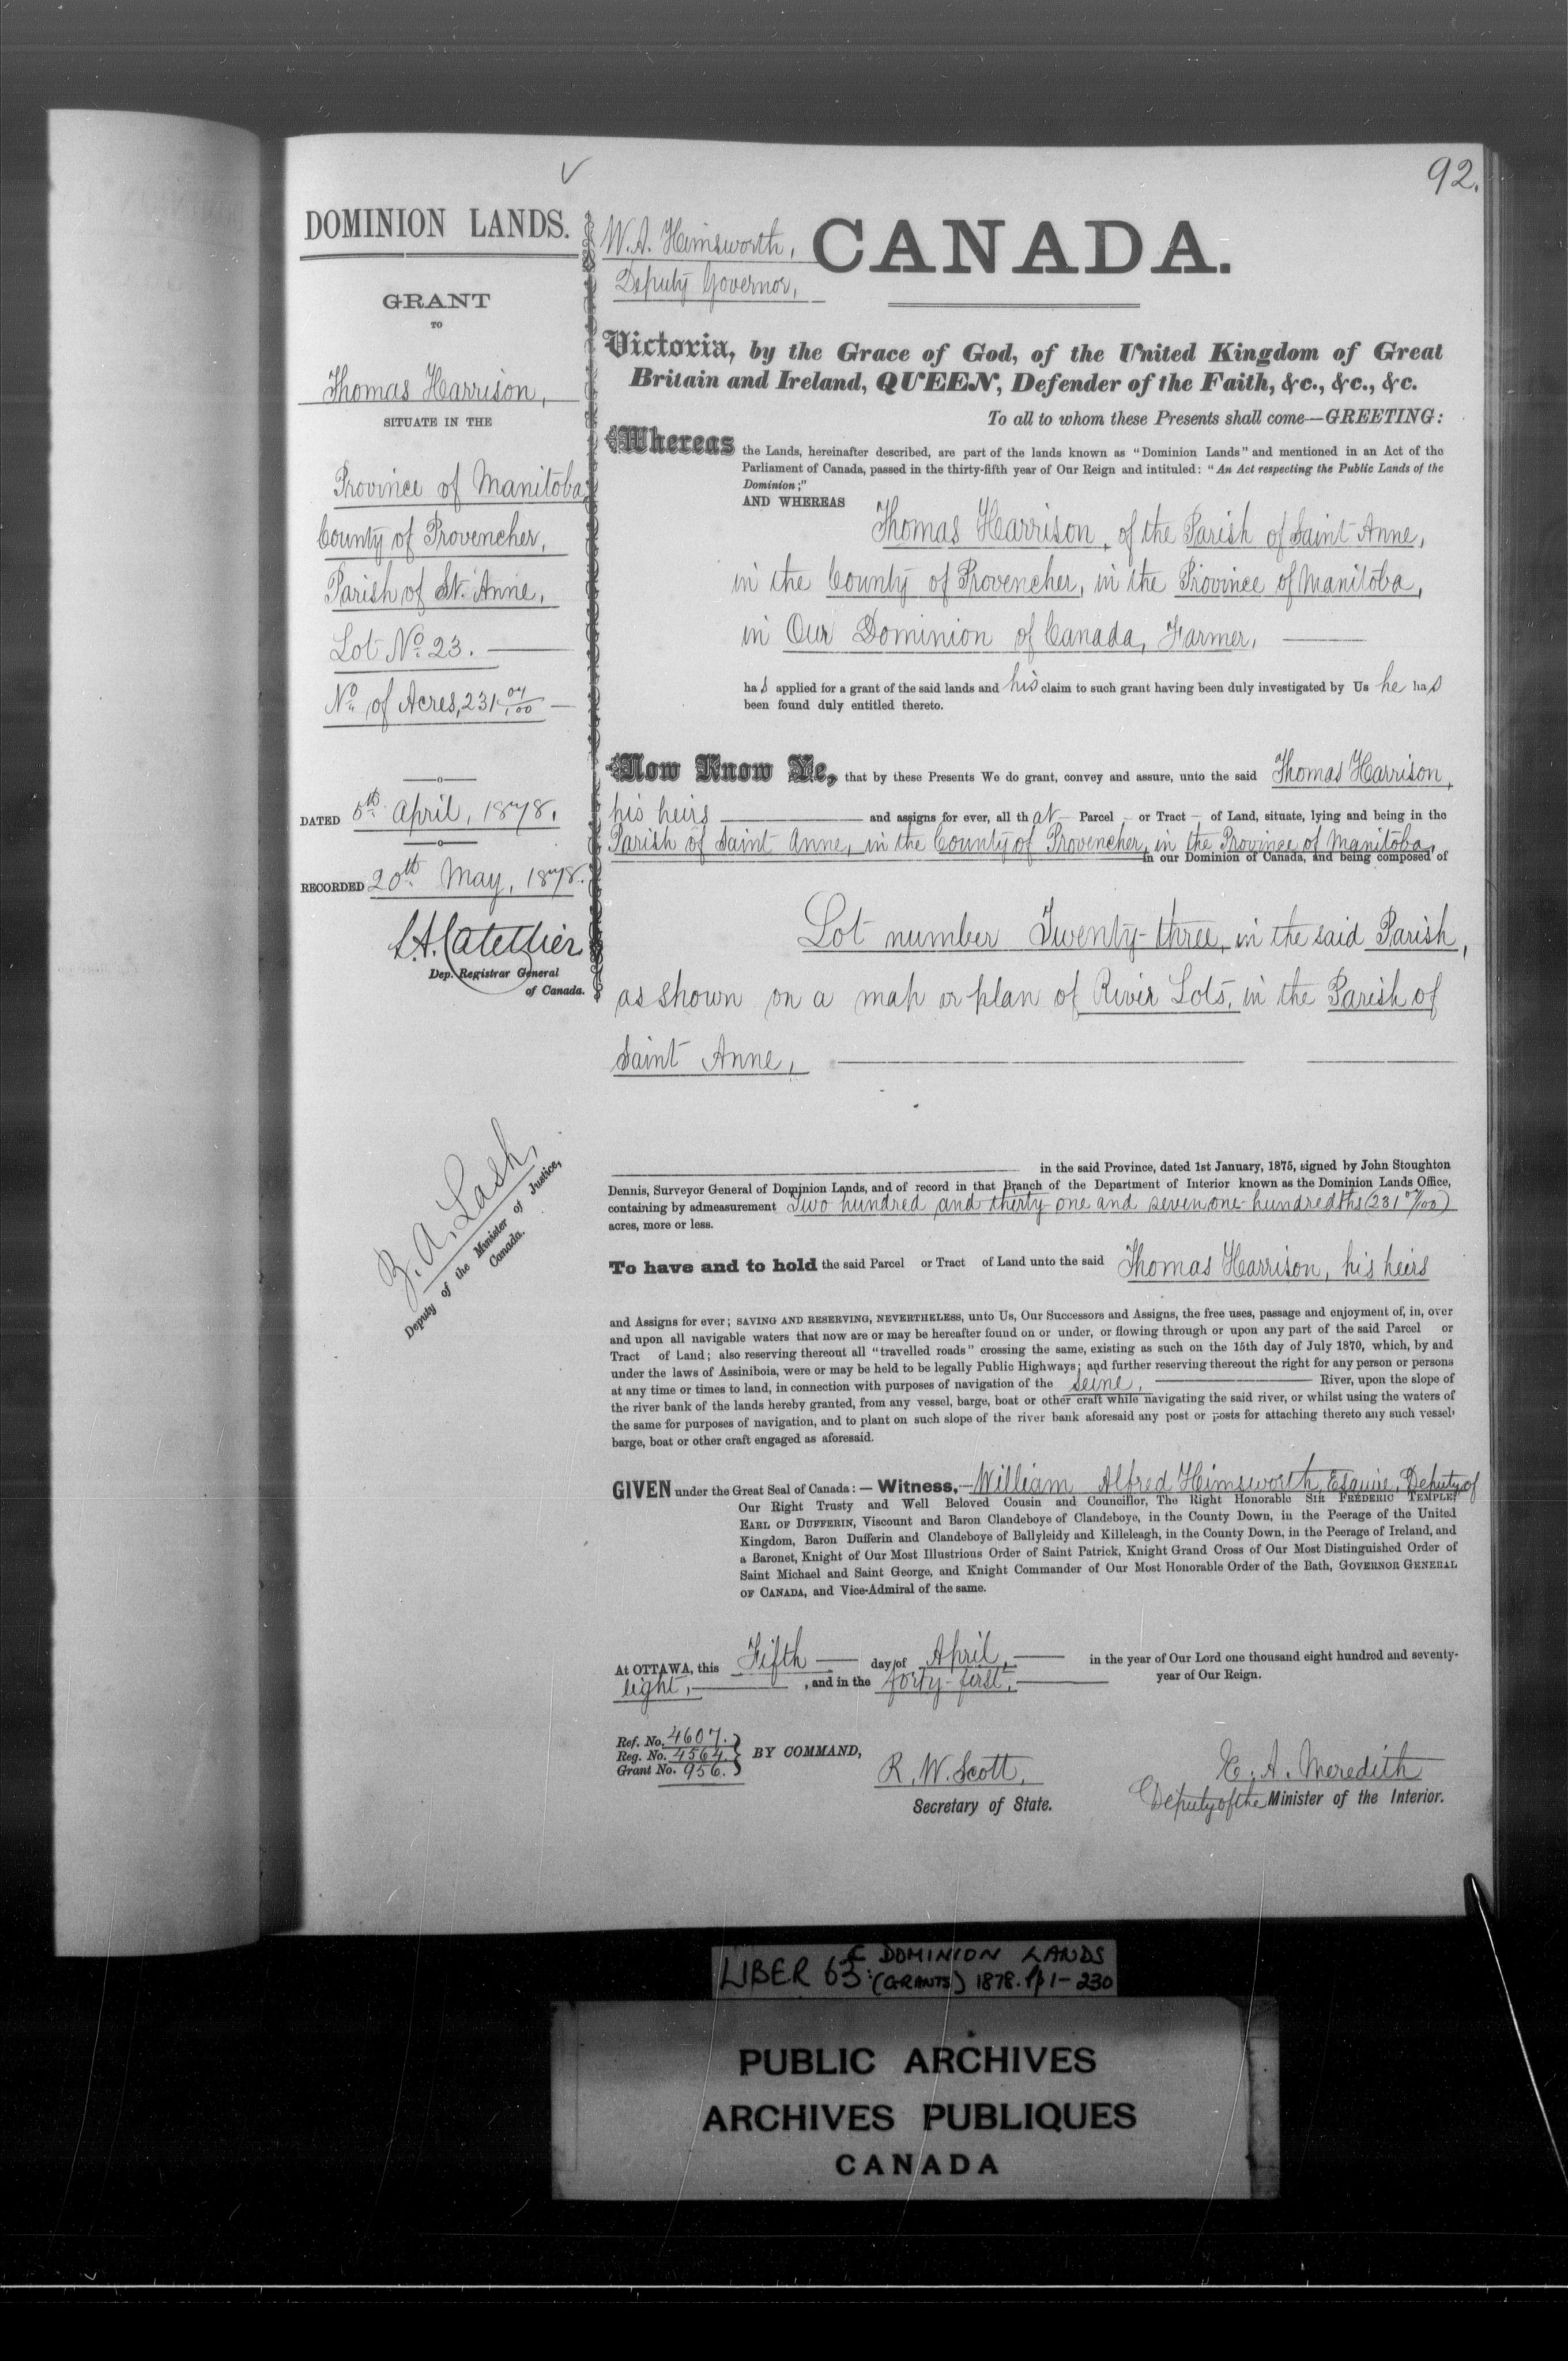 92.
DOMINION LANDS.
GRANT
TO
Thomas Harrison,
SITUATE IN THE
Province of Manitoba,
County of Provencher,
Parish of St. Anne,
Lot No. 23.
No. of Acres, 231 07/100
DATED 5th April, 1878.
RECORDED 20th May, 1878.
L.A. Catellier
Dep. Registrar General
of Canada.
Z. A. Lash,
Deputy of the Minister of Justice,
Canada.
W. A. Himsworth,
Deputy Governor,
CANADA.
Victoria, by the Grace of God, of the United Kingdom of Great
Britain and Ireland, QUEEN, Defender of the Faith, &c., &c., &c.
To all to whom these Presents shall come—GREETING:
Whereas the Lands, hereinafter described, are part of the lands known as "Dominion Lands" and mentioned in an Act of the
Parliament of Canada, passed in the thirty-fifth year of Our Reign and intituled: "An Act respecting the Public Lands of the
Dominion;"
AND WHEREAS
Thomas Harrison, of the Parish of Saint Anne,
in the County of Provencher, in the Province of Manitoba,
in Our Dominion of Canada, Farmer,
has applied for a grant of the said lands and his claim to such grant having been duly investigated by Us he has
been found duly entitled thereto.
Now Know Ye, that by these Presents We do grant, convey and assure, unto the said Thomas Harrison,
his heirs and assigns for ever, all that Parcel or Tract of Land, situate, lying and being in the
Parish of Saint Anne, in the County of Provencher, in the Province of Manitoba,
in our Dominion of Canada, and being composed of
Lot number Twenty-three, in the said Parish,
as shown on a map or plan of River Lots, in the Parish of
Saint Anne,
in the said Province, dated 1st January, 1875, signed by John Stoughton
Dennis, Surveyor General of Dominion Lands, and of record in that Branch of the Department of Interior known as the Dominion Lands Office,
containing by admeasurement Two hundred and thirty-one and seven one-hundredths (231 07/100)
acres, more or less.
To have and to hold the said Parcel or Tract of Land unto the said Thomas Harrison, his heirs
and Assigns for ever; SAVING AND RESERVING, NEVERTHELESS, unto Us, Our Successors and Assigns, the free uses, passage and enjoyment of, in, over
and upon all navigable waters that now are or may be hereafter found on or under, or flowing through or upon any part of the said Parcel or
Tract of Land; also reserving thereout all "travelled roads" crossing the same, existing as such on the 15th day of July 1870, which, by and
under the laws of Assiniboia, were or may be held to be legally Public Highways; and further reserving thereout the right for any person or persons
at any time or times to land, in connection with purposes of navigation of the Seine, River, upon the slope of
the river bank of the lands hereby granted, from any vessel, barge, boat or other craft while navigating the said river, or whilst using the waters of
the same for purposes of navigation, and to plant on such slope of the river bank aforesaid any post or posts for attaching thereto any such vessel,
barge, boat or other craft engaged as aforesaid.
GIVEN under the Great Seal of Canada:— Witness,—William Alfred Himsworth, Esquire, Deputy of
Our Right Trusty and Well Beloved Cousin and Councillor, The Right Honorable SIR FREDERIC TEMPLE,
EARL OF DUFFERIN, Viscount and Baron Clandeboye of Clandeboye, in the County Down, in the Peerage of the United
Kingdom, Baron Dufferin and Clandeboye of Ballyleidy and Killeleagh, in the County Down, in the Peerage of Ireland, and
a Baronet, Knight of Our Most Illustrious Order of Saint Patrick, Knight Grand Cross of Our Most Distinguished Order of
Saint Michael and Saint George, and Knight Commander of Our Most Honorable Order of the Bath, GOVERNOR GENERAL
OF CANADA, and Vice-Admiral of the same.
At OTTAWA, this Fifth day of April, in the year of Our Lord one thousand eight hundred and seventy-
eight, , and in the forty-first, year of Our Reign.
Ref. No. 4607.
Reg. No. 4564.
Grant No. 956.
BY COMMAND,
R. W. Scott,
Secretary of State.
E. A. Meredith
Deputy of the Minister of the Interior.
LIBER 63: C DOMINION LANDS
(GRANTS) 1878. pp 1-230
PUBLIC ARCHIVES
ARCHIVES PUBLIQUES
CANADA